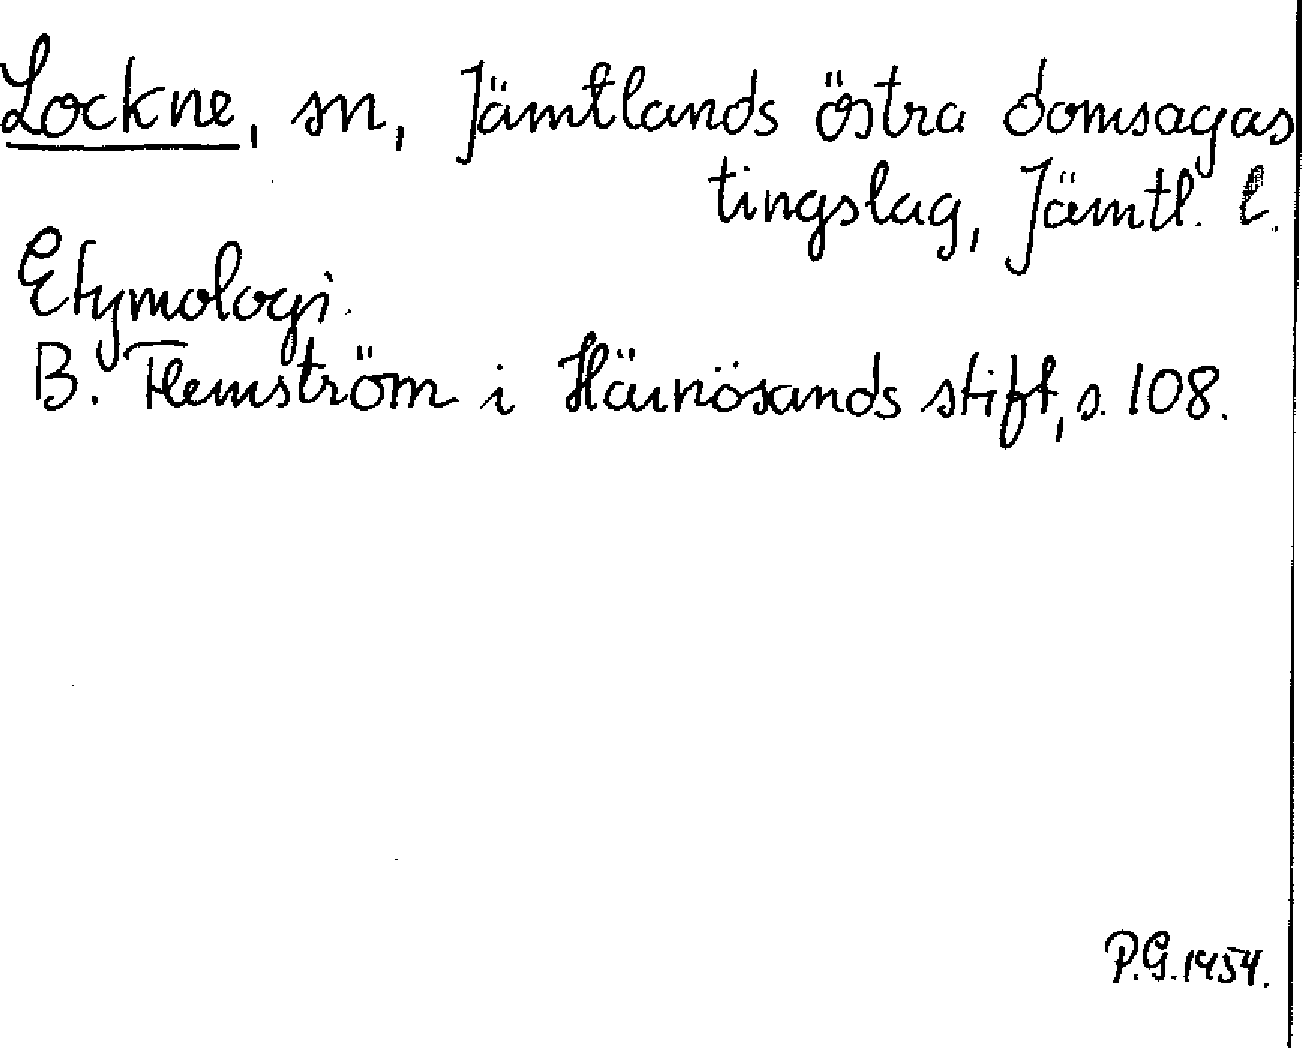 Lockne, sn, Jämtlands östra domsagas
tingslag, Jämtl. l.
Etymologi.
B. Flemström i Härnösands stift, s. 108.
P.G. 1954.